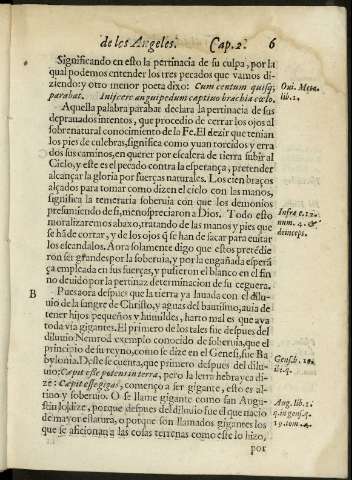 de los Angeles. Cap. 2. 6
Significando en esto la pertinacia de su culpa, por la
qual podemos entender los tres pecados que vamos di-
ziendo: y otro menor poeta dixo: Cum centum quisq;
parabat. Inijcere anguipedum captiuo brachia cælo.
Oui. Meta.
lib. 1.
Aquella palabra parabat declara la pertinacia de sus
deprauados intentos, que procedio de cerrar los ojos al
sobrenatural conocimiento de la Fe. El dezir que tenian
los pies de culebras, significa como yuan torcidos y erra
dos sus caminos, en querer por escalera de tierra subir al
Cielo, y este es el pecado contra la esperança, pretender
alcançar la gloria por fuerças naturales. Los cien braços
alçados para tomar como dizen el cielo con las manos,
significa la temeraria soberuia con que los demonios
presumiendo de si, menospreciaron a Dios. Todo esto
moralizaremos abaxo, tratando de las manos y pies que
se hã de cortar, y de los ojos q̃ se han de sacar para euitar
los escandalos. Aora solamente digo que estos pretẽdie
ron ser grandes por la soberuia, y por la engañada esperã
ça empleada en sus fuerças, y pusieron el blanco en el fin
no deuido por la pertinaz determinacion de su ceguera.
Infra c. 12.
num. 4. &
deinceps.
B Pues aora despues que la tierra ya lauada con el dilu-
uio de la sangre de Christo, y aguas del bautismo, auia de
tener hijos pequeños y humildes, harto mal es que aya
toda via gigantes. El primero de los tales fue despues del
diluuio Nemrod exemplo conocido de soberuia, que el
principio de su reyno, como se dize en el Genesi, fue Ba
bylonia. Deste se cuenta, que primero despues del dilu-
uio; Cœpit esse potens in terra, pero la letra hebrayca di-
ze: Cœpit esse gigas, començo a ser gigante, esto es al-
tiuo y soberuio. O se llame gigante como san Augu-
stin lo dize, porque despues del diluuio fue el que nacio
de mayor estatura, o porque son llamados gigantes los
que se aficionan a las cosas terrenas como este lo hizo,
Genes. 10.
Aug. lib. 1.
q. in gen. q.
por